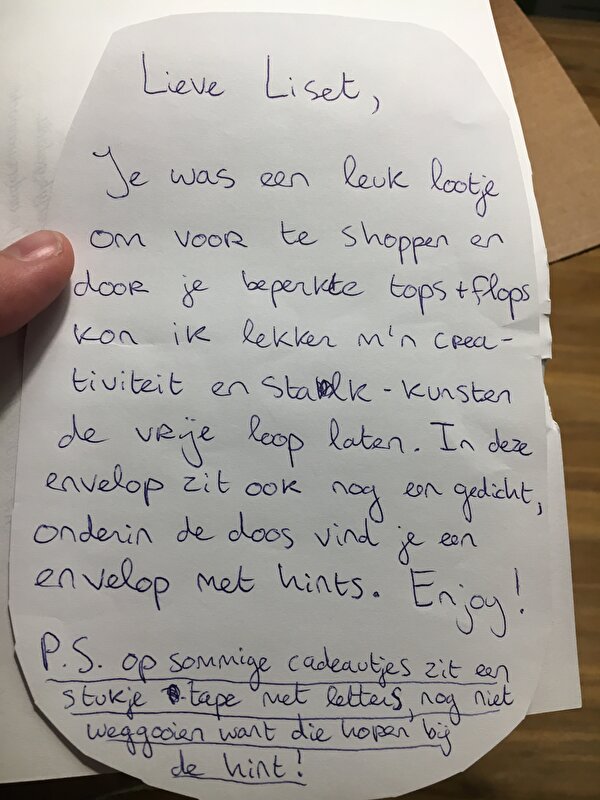 Lieve Liset,
Je was een leuk lootje
om voor te shoppen en
door je beperkte tops+flops
kon ik lekker m'n crea-
tiviteit en stalk-kunsten
de vrije loop laten. In deze
envelop zit ook nog een gedicht,
onderin de doos vind je een
envelop met hints. Enjoy!
P.S. op sommige cadeautjes zit een
stukje tape met letters, nog niet
weggooien want die horen bij
de hint!